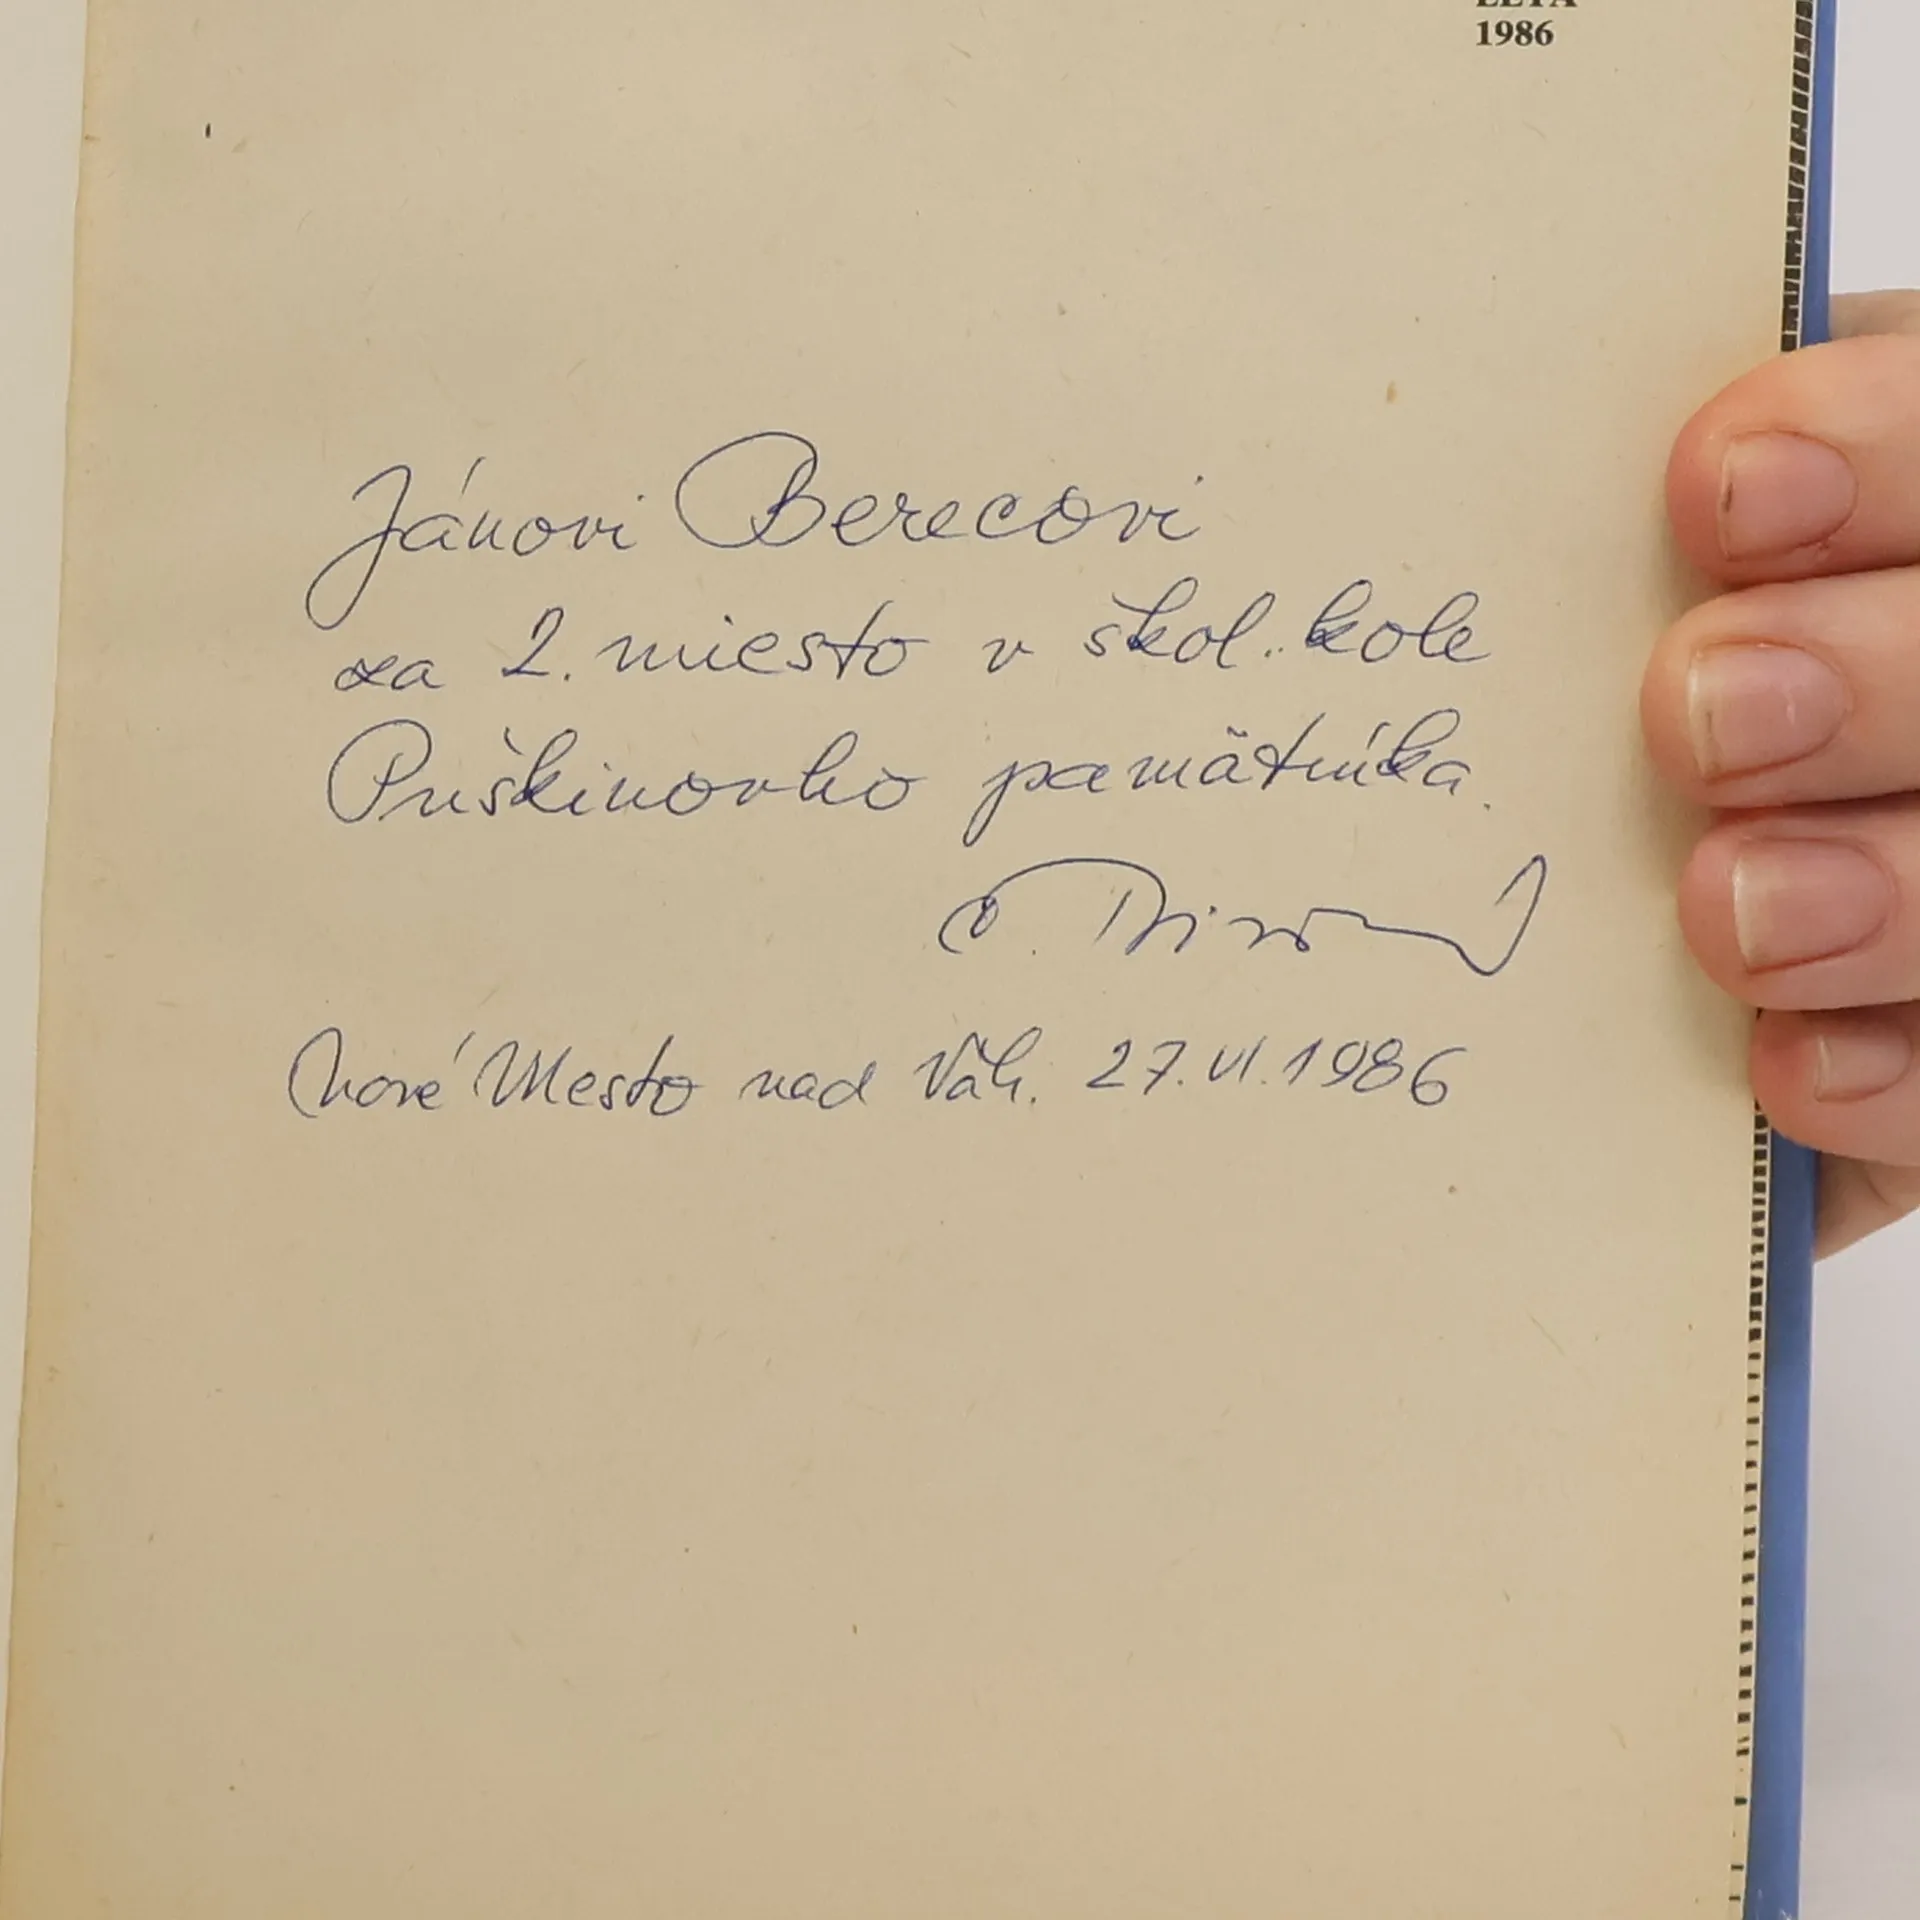 LETA
1986
Jánovi Berecovi
za 2. miesto v škol. kole
Puškinovho pamätníka.
Nové Mesto nad Váh. 27.VI.1986